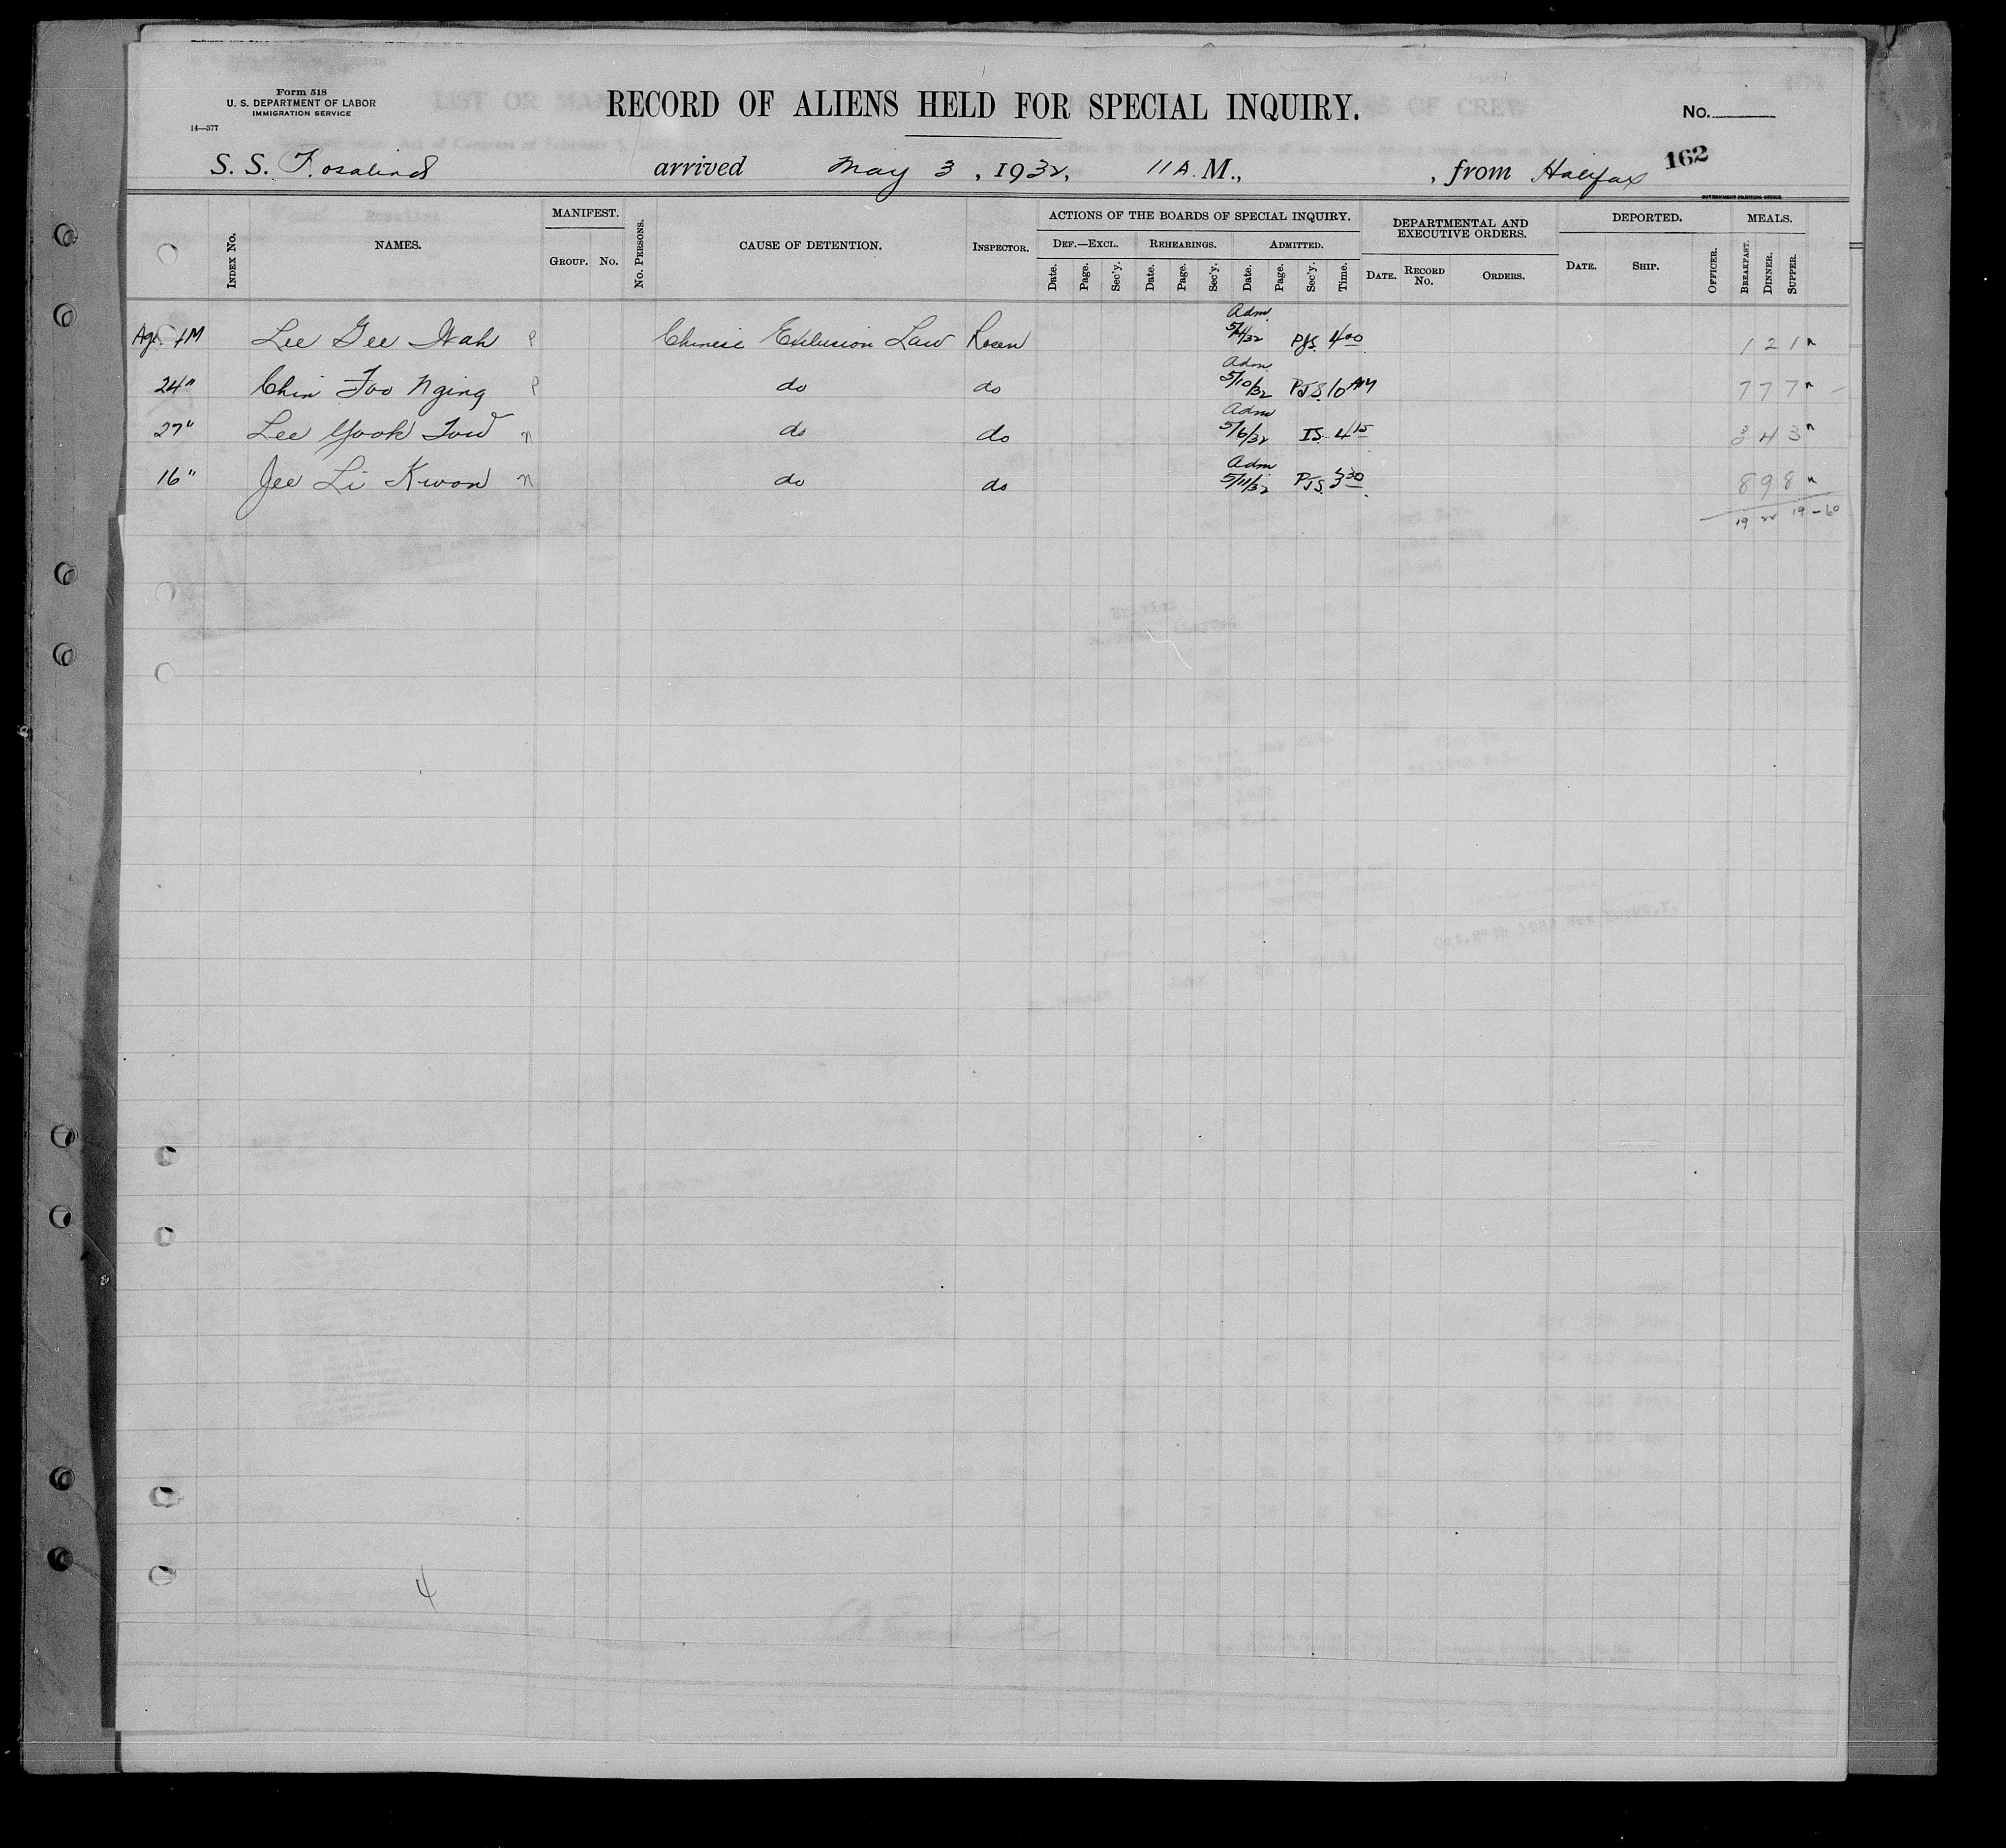 Form 518
U. S. DEPARTMENT OF LABOR
IMMIGRATION SERVICE
14—377
RECORD OF ALIENS HELD FOR SPECIAL INQUIRY.
No.
162
S. S. Rosalind arrived May 3, 1932, 11 A. M., , from Halifax
GOVERNMENT PRINTING OFFICE
INDEX No. NAMES. MANIFEST. GROUP. No. No. PERSONS. CAUSE OF DETENTION. INSPECTOR. ACTIONS OF THE BOARDS OF SPECIAL INQUIRY. DEPARTMENTAL AND EXECUTIVE ORDERS. DEPORTED. MEALS.
DEF.—EXCL. REHEARINGS. ADMITTED.
Date. Page. Sec'y. Date. Page. Sec'y. Date. Page. Sec'y. Time. DATE. RECORD No. ORDERS. DATE. SHIP. OFFICER. BREAKFAST. DINNER. SUPPER.
Age M Lee Gee Wah P Chinese Exclusion Law Rosen Adm 5/4/32 PJS. 4 00 1 2 1
24 " Chin Foo Nging P do do Adm 5/10/32 PJS. 10 AM 7 7 7
27 " Lee Yook Tow n do do Adm 5/6/32 IS. 4 15 3 4 3
16 " Jee Li Kwon n do do Adm 5/11/32 PJS. 3 30 8 9 8
19 22 19 – 60
4